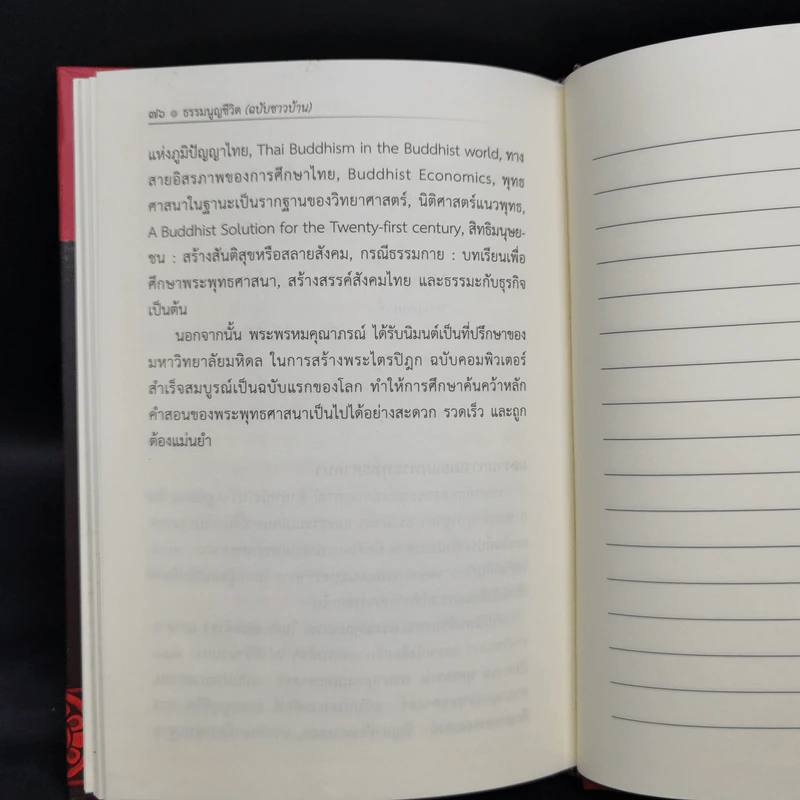 ๗๖ ๏ ธรรมนูญชีวิต (ฉบับชาวบ้าน)
แห่งภูมิปัญญาไทย, Thai Buddhism in the Buddhist world, ทาง
สายอิสรภาพของการศึกษาไทย, Buddhist Economics, พุทธ
ศาสนาในฐานะเป็นรากฐานของวิทยาศาสตร์, นิติศาสตร์แนวพุทธ,
A Buddhist Solution for the Twenty-first century, สิทธิมนุษย-
ชน : สร้างสันติสุขหรือสลายสังคม, กรณีธรรมกาย : บทเรียนเพื่อ
ศึกษาพระพุทธศาสนา, สร้างสรรค์สังคมไทย และธรรมะกับธุรกิจ
เป็นต้น
นอกจากนั้น พระพรหมคุณาภรณ์ ได้รับนิมนต์เป็นที่ปรึกษาของ
มหาวิทยาลัยมหิดล ในการสร้างพระไตรปิฎก ฉบับคอมพิวเตอร์
สำเร็จสมบูรณ์เป็นฉบับแรกของโลก ทำให้การศึกษาค้นคว้าหลัก
คำสอนของพระพุทธศาสนาเป็นไปได้อย่างสะดวก รวดเร็ว และถูก
ต้องแม่นยำ